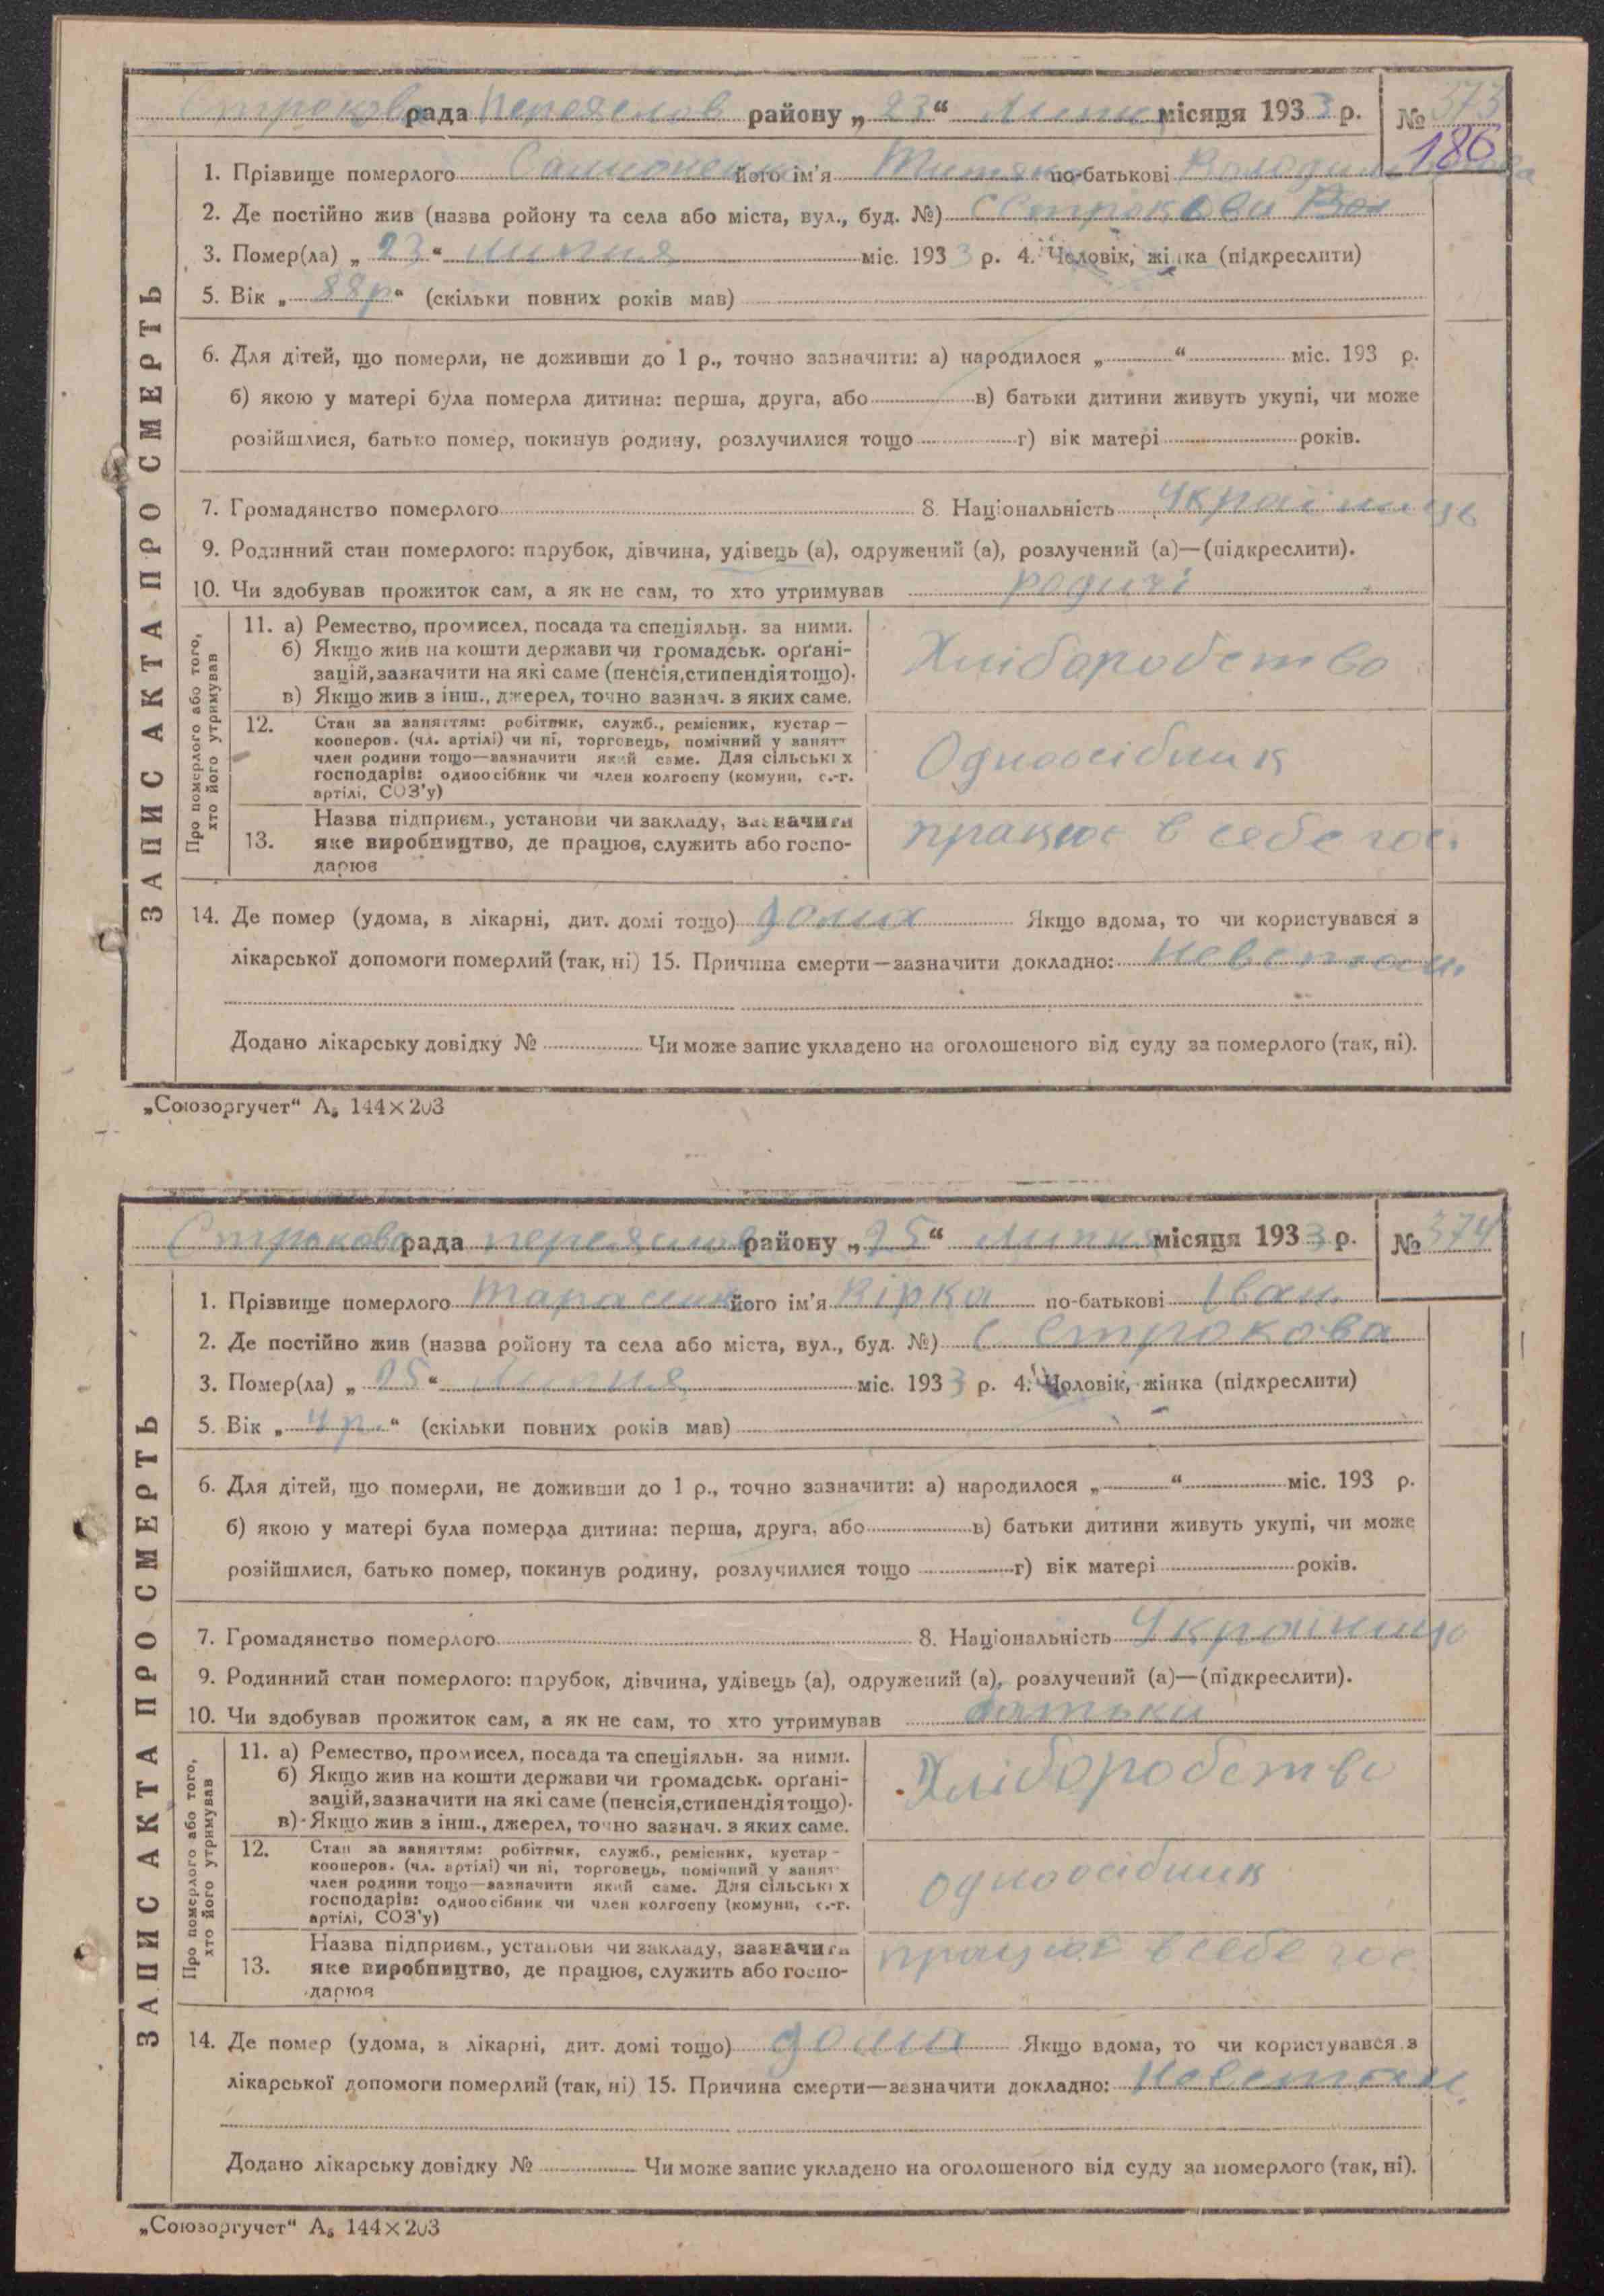 Строкова рада Переяслов району „ 23 “ Липня місяця 1933 р. № 373
186
1. Прізвище померлого його ім'я по-батькові
2. Де постійно жив (назва ройону та села або міста, вул., буд. №) С Строкова
3. Помер(ла) „ 23 “ Липня міс. 1933 р. 4. Чоловік, жінка (підкреслити)
5. Вік „ 88р “ (скільки повних років мав)
6. Для дітей, що померли, не доживши до 1 р., точно зазначити: а) народилося „ “ міс. 193 р.
б) якою у матері була померла дитина: перша, друга, або в) батьки дитини живуть укупі, чи може
розійшлися, батько помер, покинув родину, розлучилися тощо г) вік матері років.
7. Громадянство померлого 8. Національність Українець
9. Родинний стан померлого: парубок, дівчина, удівець (а), одружений (а), розлучений (а)—(підкреслити).
10. Чи здобував прожиток сам, а як не сам, то хто утримував родичі
ЗАПИС АКТА ПРО СМЕРТЬ
Про померлого або того, хто його утримував
11. а) Ремество, промисел, посада та спеціяльн. за ними.
б) Якщо жив на кошти держави чи громадськ. орґані-
зацій, зазначити на які саме (пенсія, стипендія тощо).
в) Якщо жив з інш., джерел, точно зазнач. з яких саме.
Хліборобство
12. Стан за заняттям: робітник, служб., ремісник, кустар—
кооперов. (чл. артілі) чи ні, торговець, помічний у занятт
член родини тощо—зазначити який саме. Для сільських
господарів: одноосібник чи член колгоспу (комуни, с.-г.
артілі, СОЗ'у)
Одноосібник
13. Назва підприєм., установи чи закладу, зазначити
яке виробництво, де працює, служить або госпо-
дарює
працює в себе гос.
14. Де помер (удома, в лікарні, дит. домі тощо) дома Якщо вдома, то чи користувався з
лікарської допомоги померлий (так, ні) 15. Причина смерти—зазначити докладно:
Додано лікарську довідку № Чи може запис укладено на оголошеного від суду за померлого (так, ні).
„Союзоргучет“ А₅ 144×203
Строкова рада переяслов району „ 25 “ Липня місяця 1933 р. № 374
1. Прізвище померлого його ім'я Вірка по-батькові Іван.
2. Де постійно жив (назва ройону та села або міста, вул., буд. №) С Строкова
3. Помер(ла) „ 25 “ Липня міс. 1933 р. 4. Чоловік, жінка (підкреслити)
5. Вік „ 4 р. “ (скільки повних років мав)
6. Для дітей, що померли, не доживши до 1 р., точно зазначити: а) народилося „ “ міс. 193 р.
б) якою у матері була померла дитина: перша, друга, або в) батьки дитини живуть укупі, чи може
розійшлися, батько помер, покинув родину, розлучилися тощо г) вік матері років.
7. Громадянство померлого 8. Національність
9. Родинний стан померлого: парубок, дівчина, удівець (а), одружений (а), розлучений (а)—(підкреслити).
10. Чи здобував прожиток сам, а як не сам, то хто утримував батьки
ЗАПИС АКТА ПРО СМЕРТЬ
Про померлого або того, хто його утримував
11. а) Ремество, промисел, посада та спеціяльн. за ними.
б) Якщо жив на кошти держави чи громадськ. орґані-
зацій, зазначити на які саме (пенсія, стипендія тощо).
в) Якщо жив з інш., джерел, точно зазнач. з яких саме.
Хліборобство
12. Стан за заняттям: робітник, служб., ремісник, кустар—
кооперов. (чл. артілі) чи ні, торговець, помічний у занятт
член родини тощо—зазначити який саме. Для сільських
господарів: одноосібник чи член колгоспу (комуни, с.-г.
артілі, СОЗ'у)
одноосібник
13. Назва підприєм., установи чи закладу, зазначити
яке виробництво, де працює, служить або госпо-
дарює
працює в себе гос
14. Де помер (удома, в лікарні, дит. домі тощо) дома Якщо вдома, то чи користувався з
лікарської допомоги померлий (так, ні) 15. Причина смерти—зазначити докладно:
Додано лікарську довідку № Чи може запис укладено на оголошеного від суду за померлого (так, ні).
„Союзоргучет“ А₅ 144×203